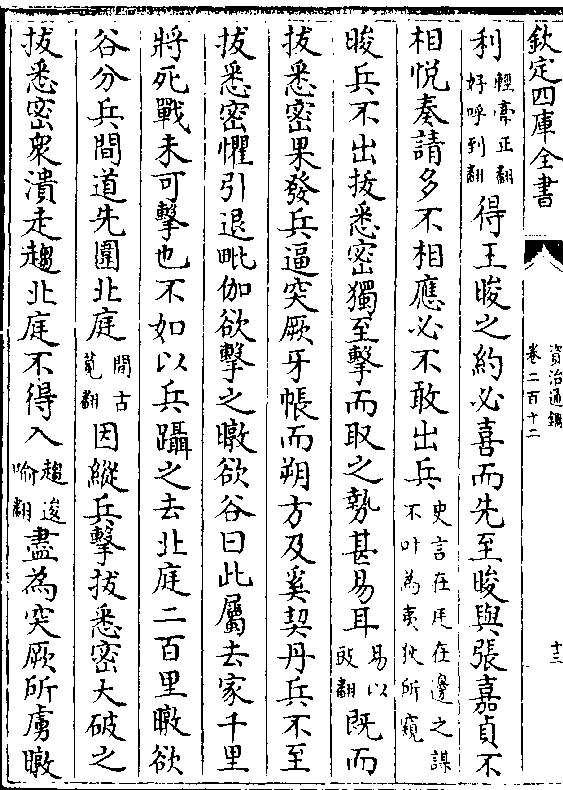 欽定四庫全書
資治通鑑
卷二百十二
十三
利輕牽正翻好呼到翻得王晙之約必喜而先至晙與張嘉貞不
相悦奏請多不相應必不敢出兵史言在廷在邊之謀不叶為夷狄所窺
晙兵不出拔悉密獨至擊而取之埶甚易耳易以豉翻既而
拔悉密果發兵逼突厥牙帳而朔方及奚契丹兵不至
拔悉密懼引退毗伽欲擊之暾欲谷曰此屬去家千里
將死戰未可擊也不如以兵躡之去北庭二百里暾欲
谷分兵間道先圍北庭間古莧翻因縱兵擊拔悉密大破之
拔悉密衆潰走趨北庭不得入趨逡喻翻盡為突厥所虜暾